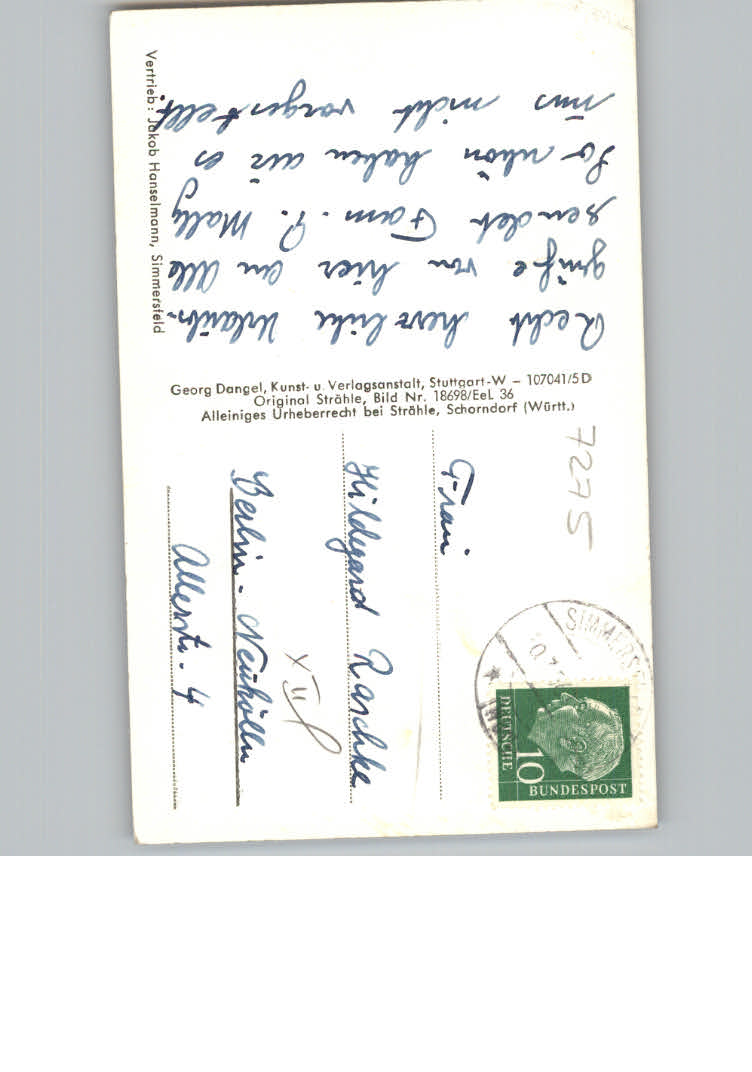 Recht herzliche Urlaubs-
grüße von hier an Alle
sendet Fam. P. Mally
So schön haben wir es
uns nicht vorgestellt.
Vertrieb: Jakob Hanselmann, Simmersfeld
Georg Dangel, Kunst- u. Verlagsanstalt, Stuttgart-W – 107041/5 D
Original Strähle, Bild Nr. 18698/EeL 36
Alleiniges Urheberrecht bei Strähle, Schorndorf (Württ.)
7275
SIMMERS
DEUTSCHE
10
BUNDESPOST
Frau
Hildegard Raschke
Berlin-Neukölln
Allerstr. 4